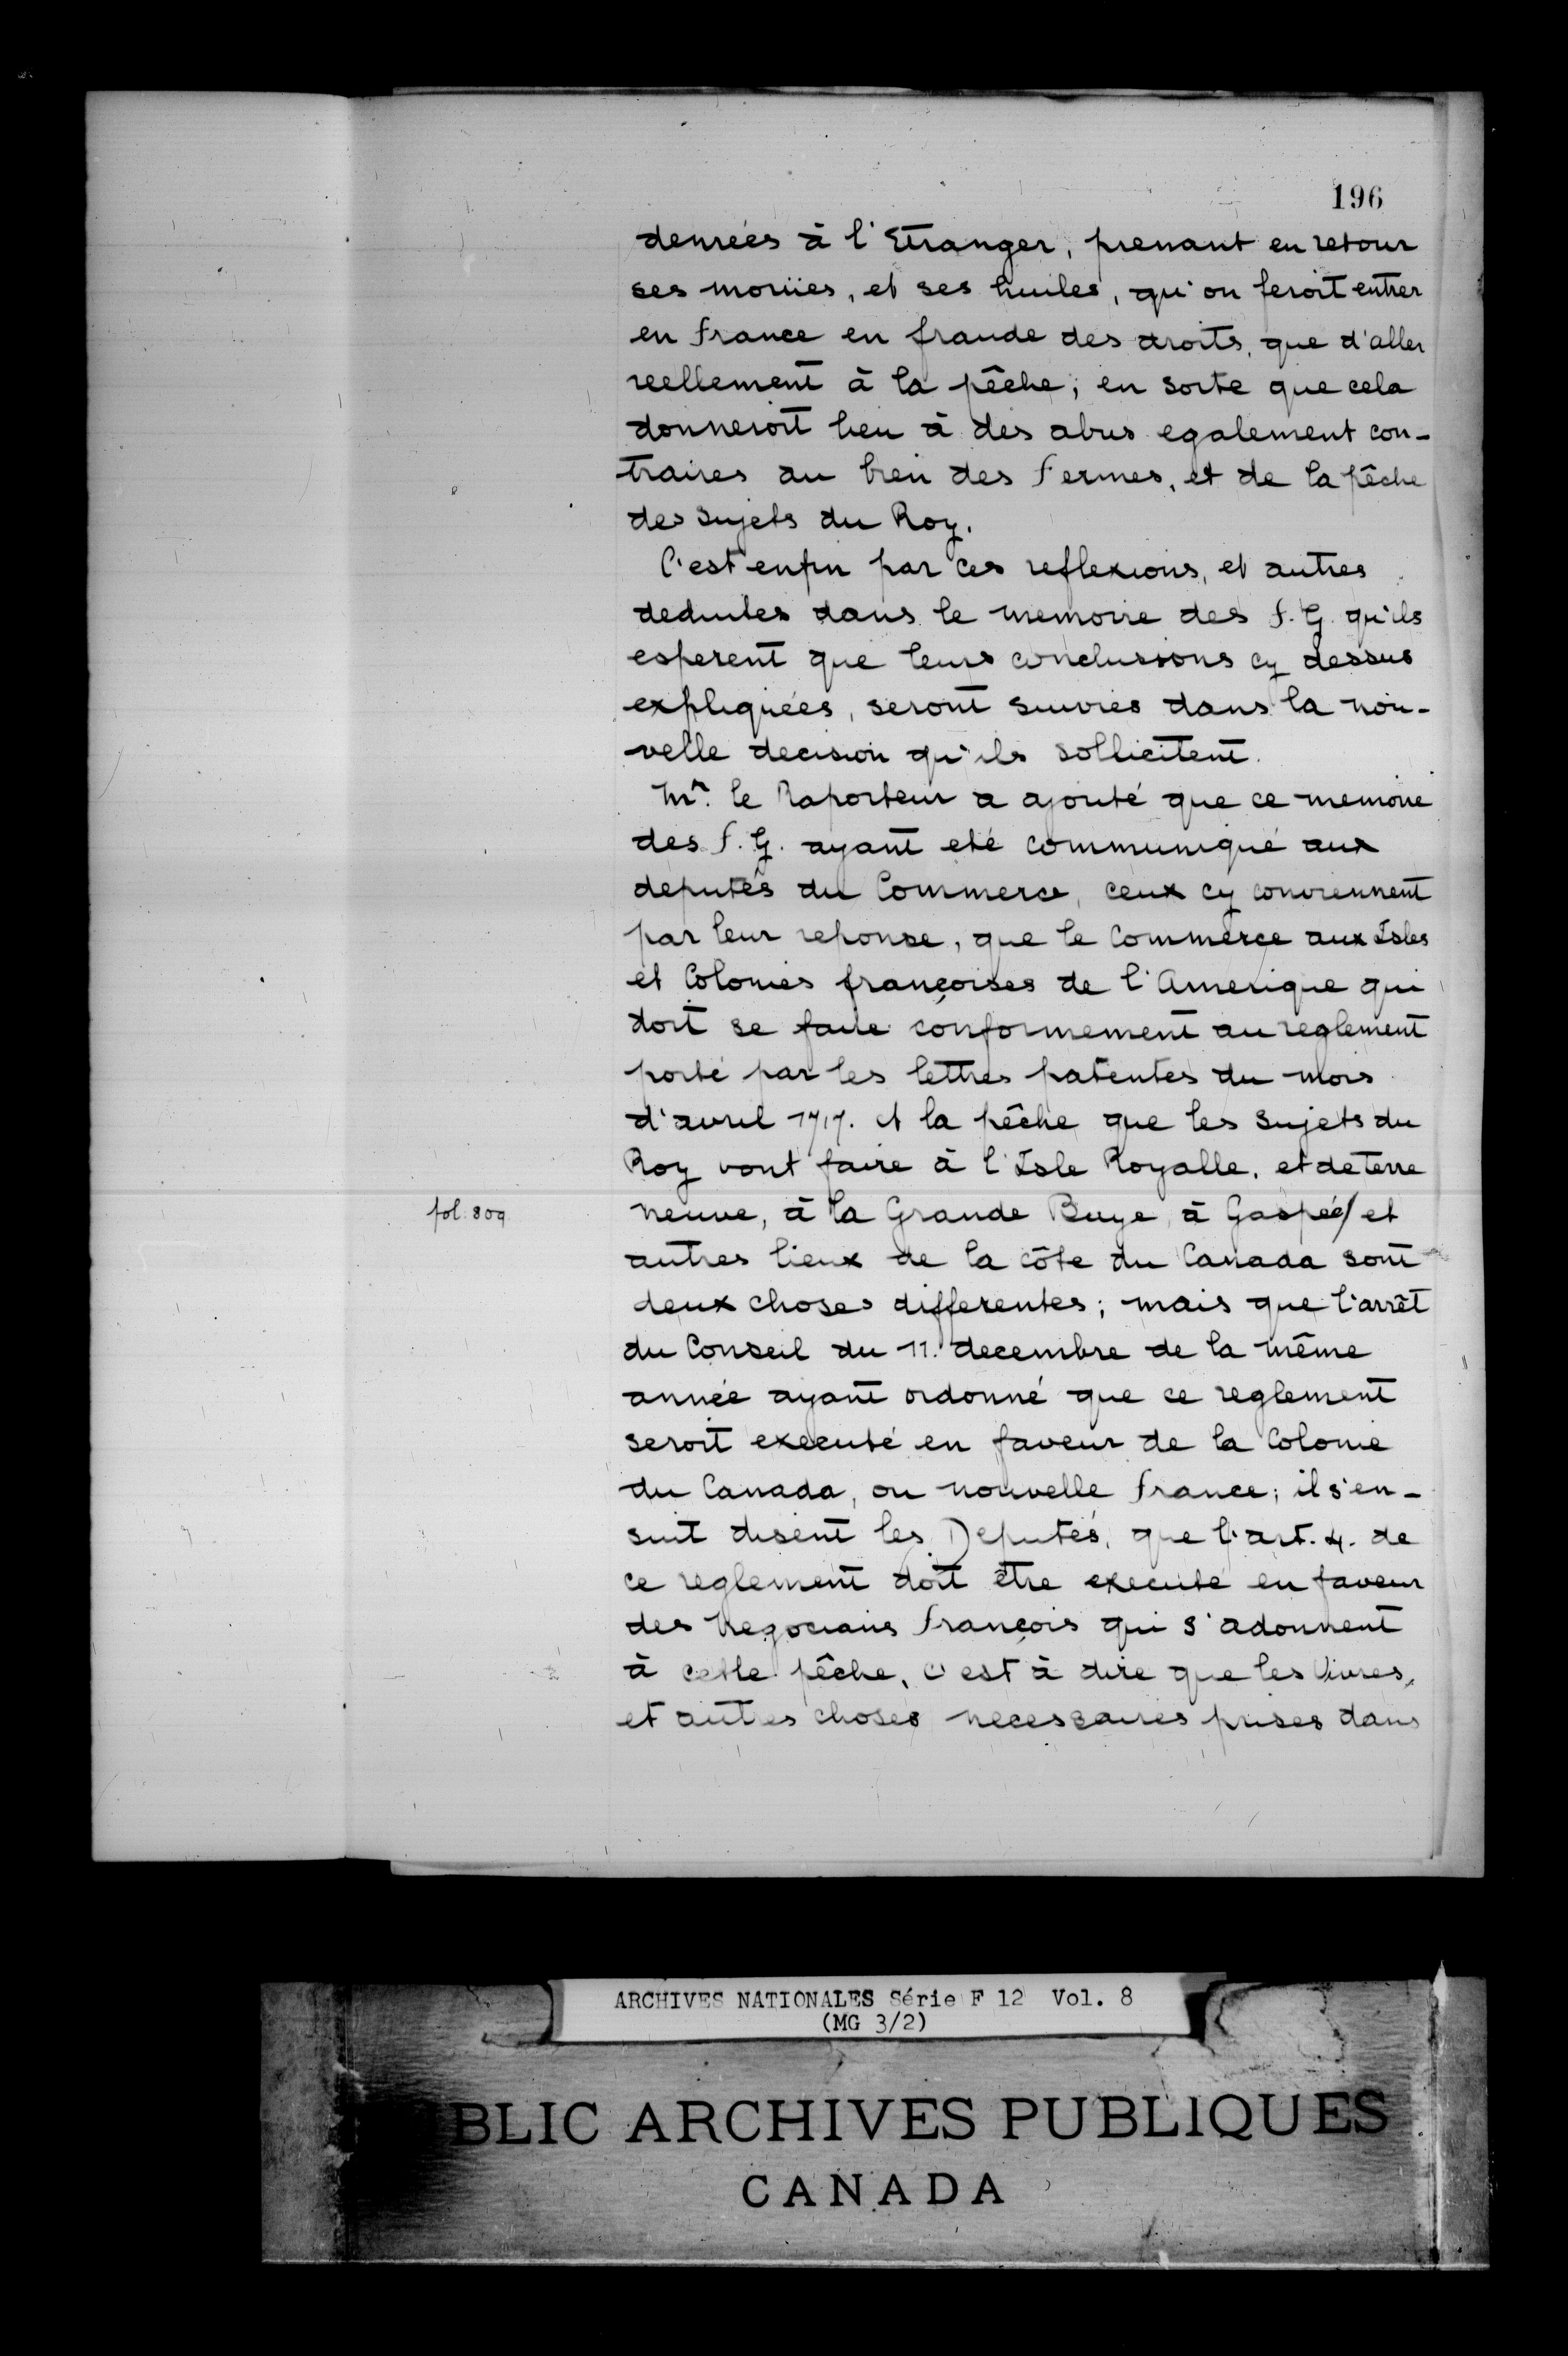 196
denrées à l'Etranger, prenant en retour
ses moriies, et ses huiles, qu'on feroit entrer
en france en fraude des droits, que d'aller
reellement à la pêche; en sorte que cela
donneroit lieu à des abus egalement con-
traires au bien des fermes, et de la pêche
des sujets du Roy.
C'est enfin par ces reflexions, et autres
deduites dans le memoire des f. G. qu'ils
esperent que leurs conclussions cy dessus
expliquées, seront suivies dans la nou-
velle decision qu'ils sollicitent.
Mr. le Raporteur a ajouté que ce memoire
des f. G. ayant eté communiqué aux
deputés du Commerce, ceux cy conviennent
par leur reponse, que le Commerce aux Isles
et Colonies françoises de l'Amerique qui
doit se faire conformement au reglement
porté par les lettres patentes du mois
d'avril 1717. et la pêche que les sujets du
Roy vont faire à l'Isle Royalle, et de Terre
fol. 809
neuve, à la Grande Baye, à Gaspée/ et
autres lieux de la côte du Canada sont
deux choses differentes; mais que l'arrêt
du Conseil du 11. decembre de la même
année ayant ordonné que ce reglement
seroit executé en faveur de la Colonie
du Canada, ou nouvelle france; il s'en-
suit disent les Deputés, que l'art. 4. de
ce reglement doit être executé en faveur
des Negocians françois qui s'adonnent
à cette pêche, c'est à dire que les vivres,
et autres choses necessaires prises dans
ARCHIVES NATIONALES Série F 12 Vol. 8
(MG 3/2)
BLIC ARCHIVES PUBLIQUES
CANADA